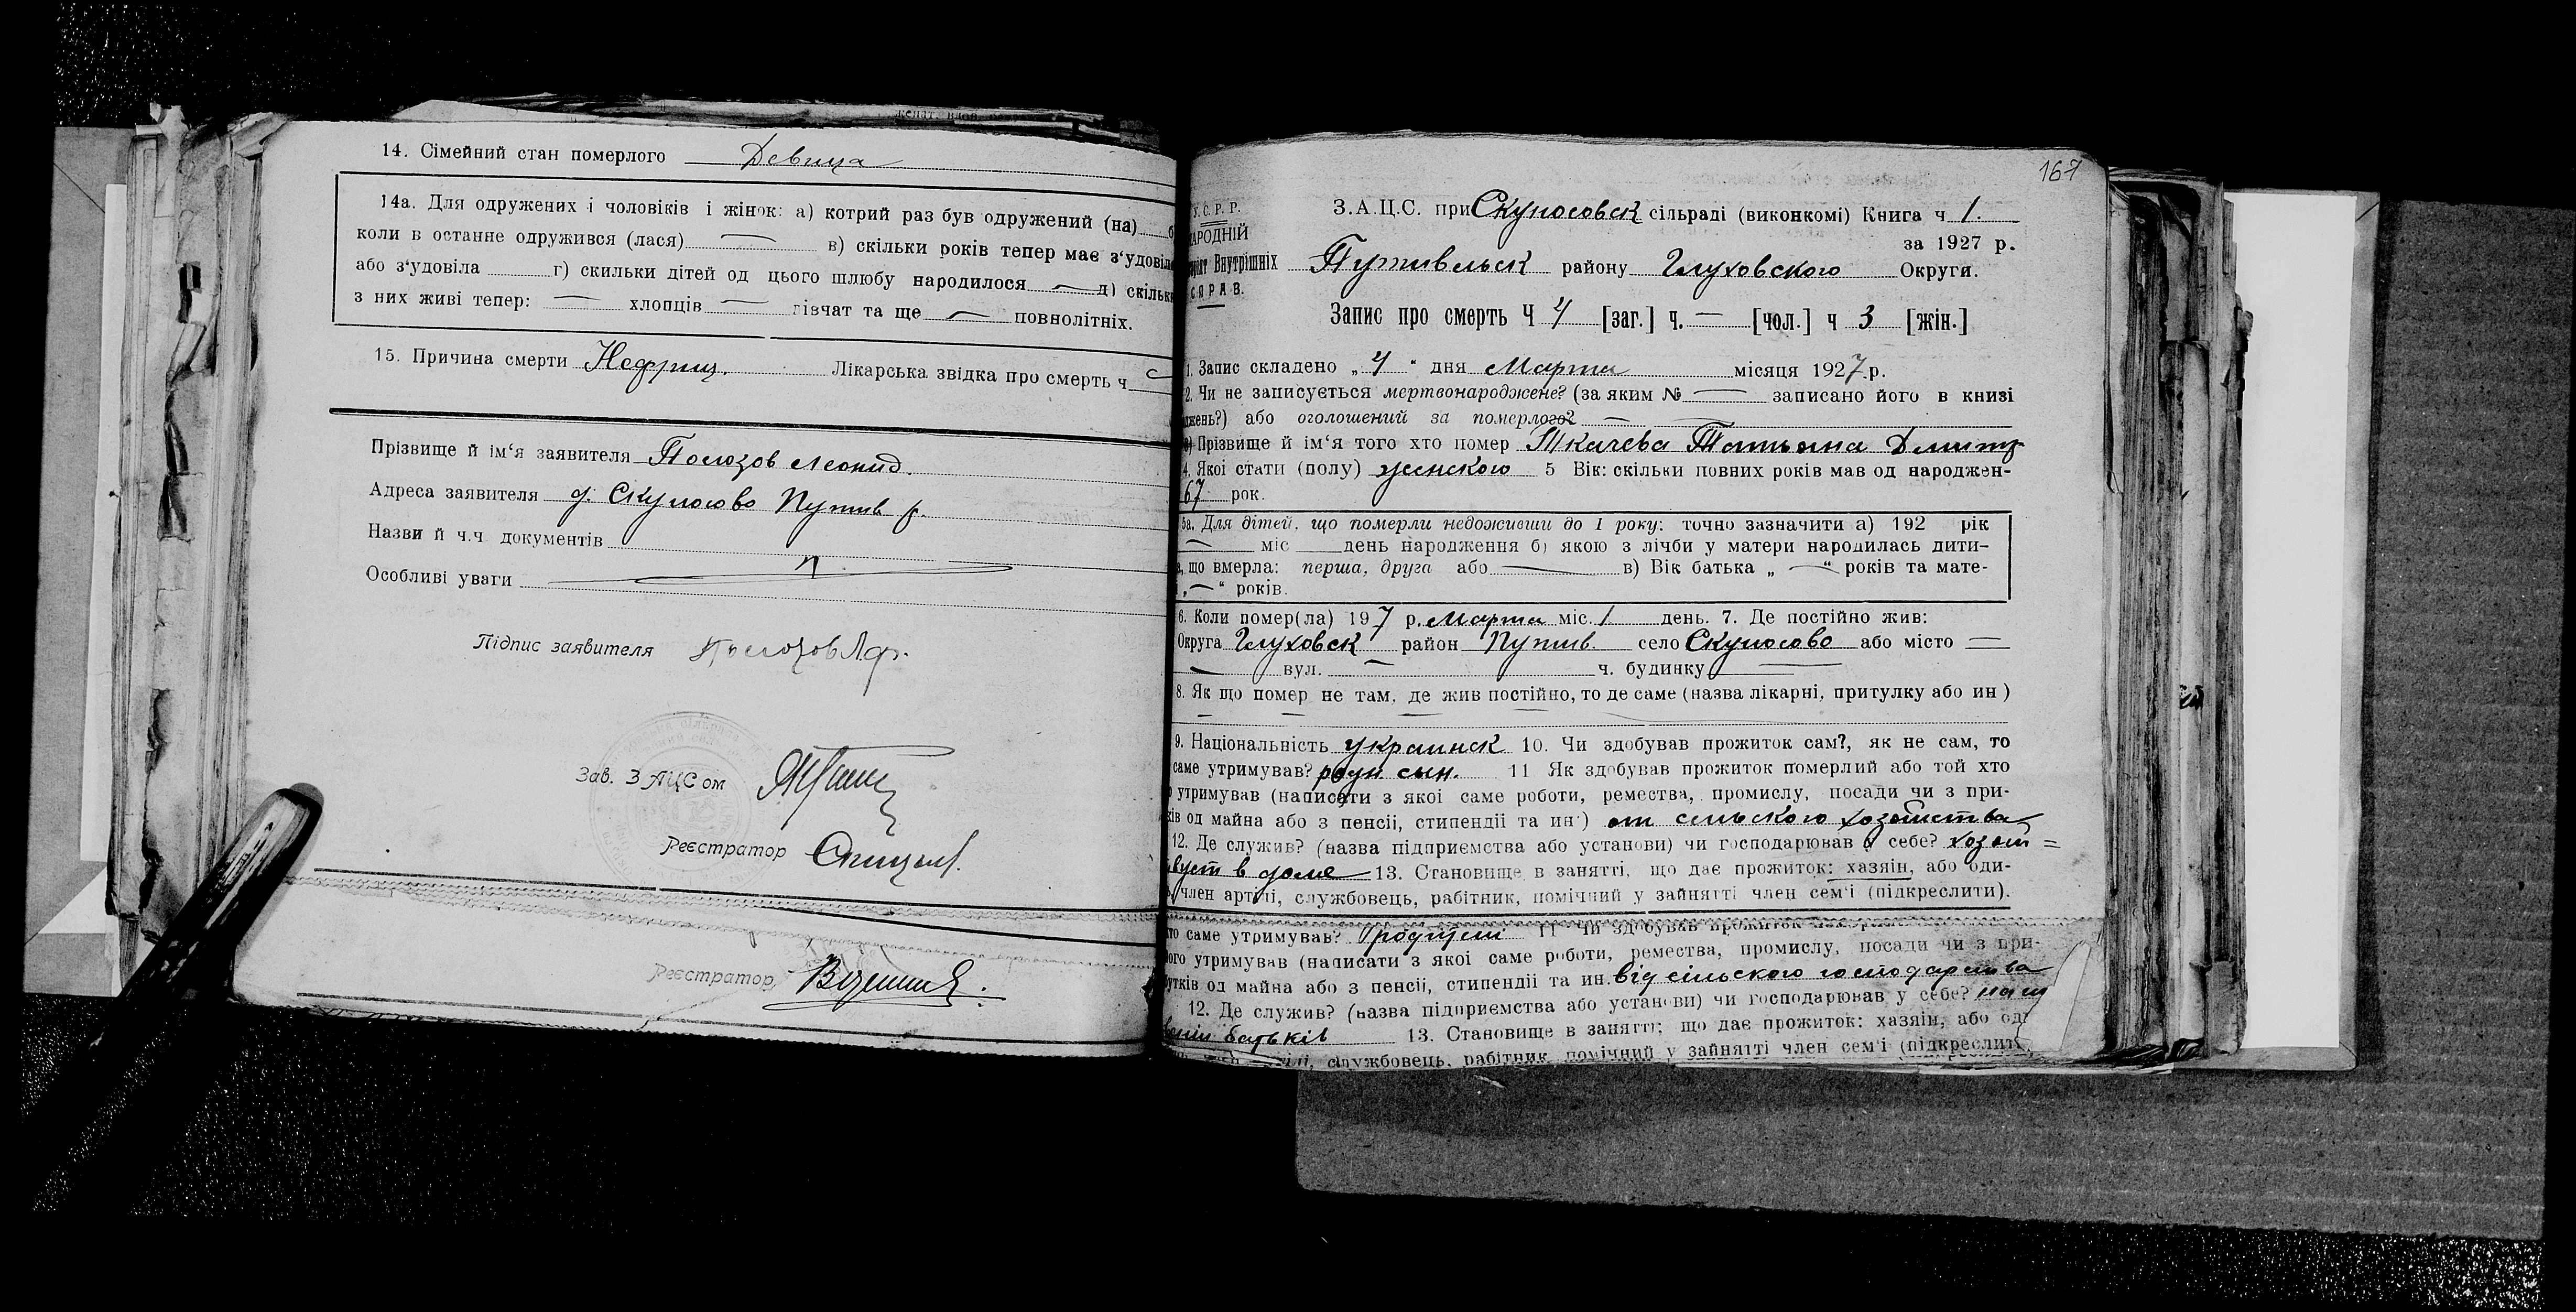 14. Сімейний стан померлого Девица
14а. Для одружених і чоловіків і жінок: а) котрий раз був одружений (на)
коли в останне одружився (лася) — в) скільки років тепер має з‘удовіл
або з‘удовіла г) скильки дітей од цього шлюбу народилося — д) скільки
з них живі тепер: — хлопців — дівчат та ще — повнолітніх.
15. Причина смерти Нефрит. Лікарська звідка про смерть ч
Прізвище й ім‘я заявителя Полозов Леонид.
Адреса заявителя д. Скуносово Путив р.
Назви й ч.ч документів
Особливі уваги
Підпис заявителя Полозов Л.ф.
Зав. ЗАЦСом
Реєстратор
Реєстратор
167
У.С.Р.Р.
АРОДНІЙ
Внутрішніх
СПРАВ.
З.А.Ц.С. при Скуносовск сільраді (виконкомі) Книга ч 1.
за 1927 р.
Путивльск району Глуховского Округи.
Запис про смерть Ч 4 [заг.] ч. — [чол.] ч 3 [жін.]
1. Запис складено „4“ дня Марта місяця 1927 р.
2. Чи не записується мертвонароджене? (за яким № — записано його в книзі
джень?) або оголошений за померлого? —
3) Прізвище й ім‘я того хто помер Ткачева Татьяна Дмитр
4. Якої стати (полу) женского 5 Вік: скільки повних років мав од народжен-
67 рок.
5а. Для дітей, що померли недоживши до 1 року: точно зазначити а) 192 рік
— міс день народження б) якою з лічби у матери народилась дити-
а, що вмерла: перша, друга або — в) Вік батька „—“ років та мате-
„—“ років.
6. Коли помер(ла) 197 р. Марта міс. 1 день. 7. Де постійно жив:
Округа Глуховск район Путив. село Скуносово або місто —
— вул. — ч. будинку —
8. Як що помер не там, де жив постійно, то де саме (назва лікарні, притулку або ин)
9. Національність украинск 10. Чи здобував прожиток сам?, як не сам, то
саме утримував? родн сын. 11 Як здобував прожиток померлий або той хто
утримував (написати з якої саме роботи, ремества, промислу, посади чи з при-
ків од майна або з пенсіі, стипендіі та ин) от сельского хозяйства
12. Де служив? (назва підприємства або установи) чи господарював у себе? хозяй=
вует в доме 13. Становище в занятті, що дає прожиток: хазяін, або оди-
член артілі, службовець, рабітник, помічний у зайнятті член сем‘і (підкреслити).
то саме утримував? родители 11 Чи здобував прожиток
ого утримував (написати з якоі саме роботи, ремества, промислу, посади чи з при-
утків од майна або з пенсіі, стипендіі та ин. від сільского господарства
12. Де служив? (назва підприємства або установи) чи господарював у себе?
батьків 13. Становище в занятті; що дає прожиток: хазяін, або оди
службовець, рабітник, помічний у зайнятті член сем‘і (підкреслит